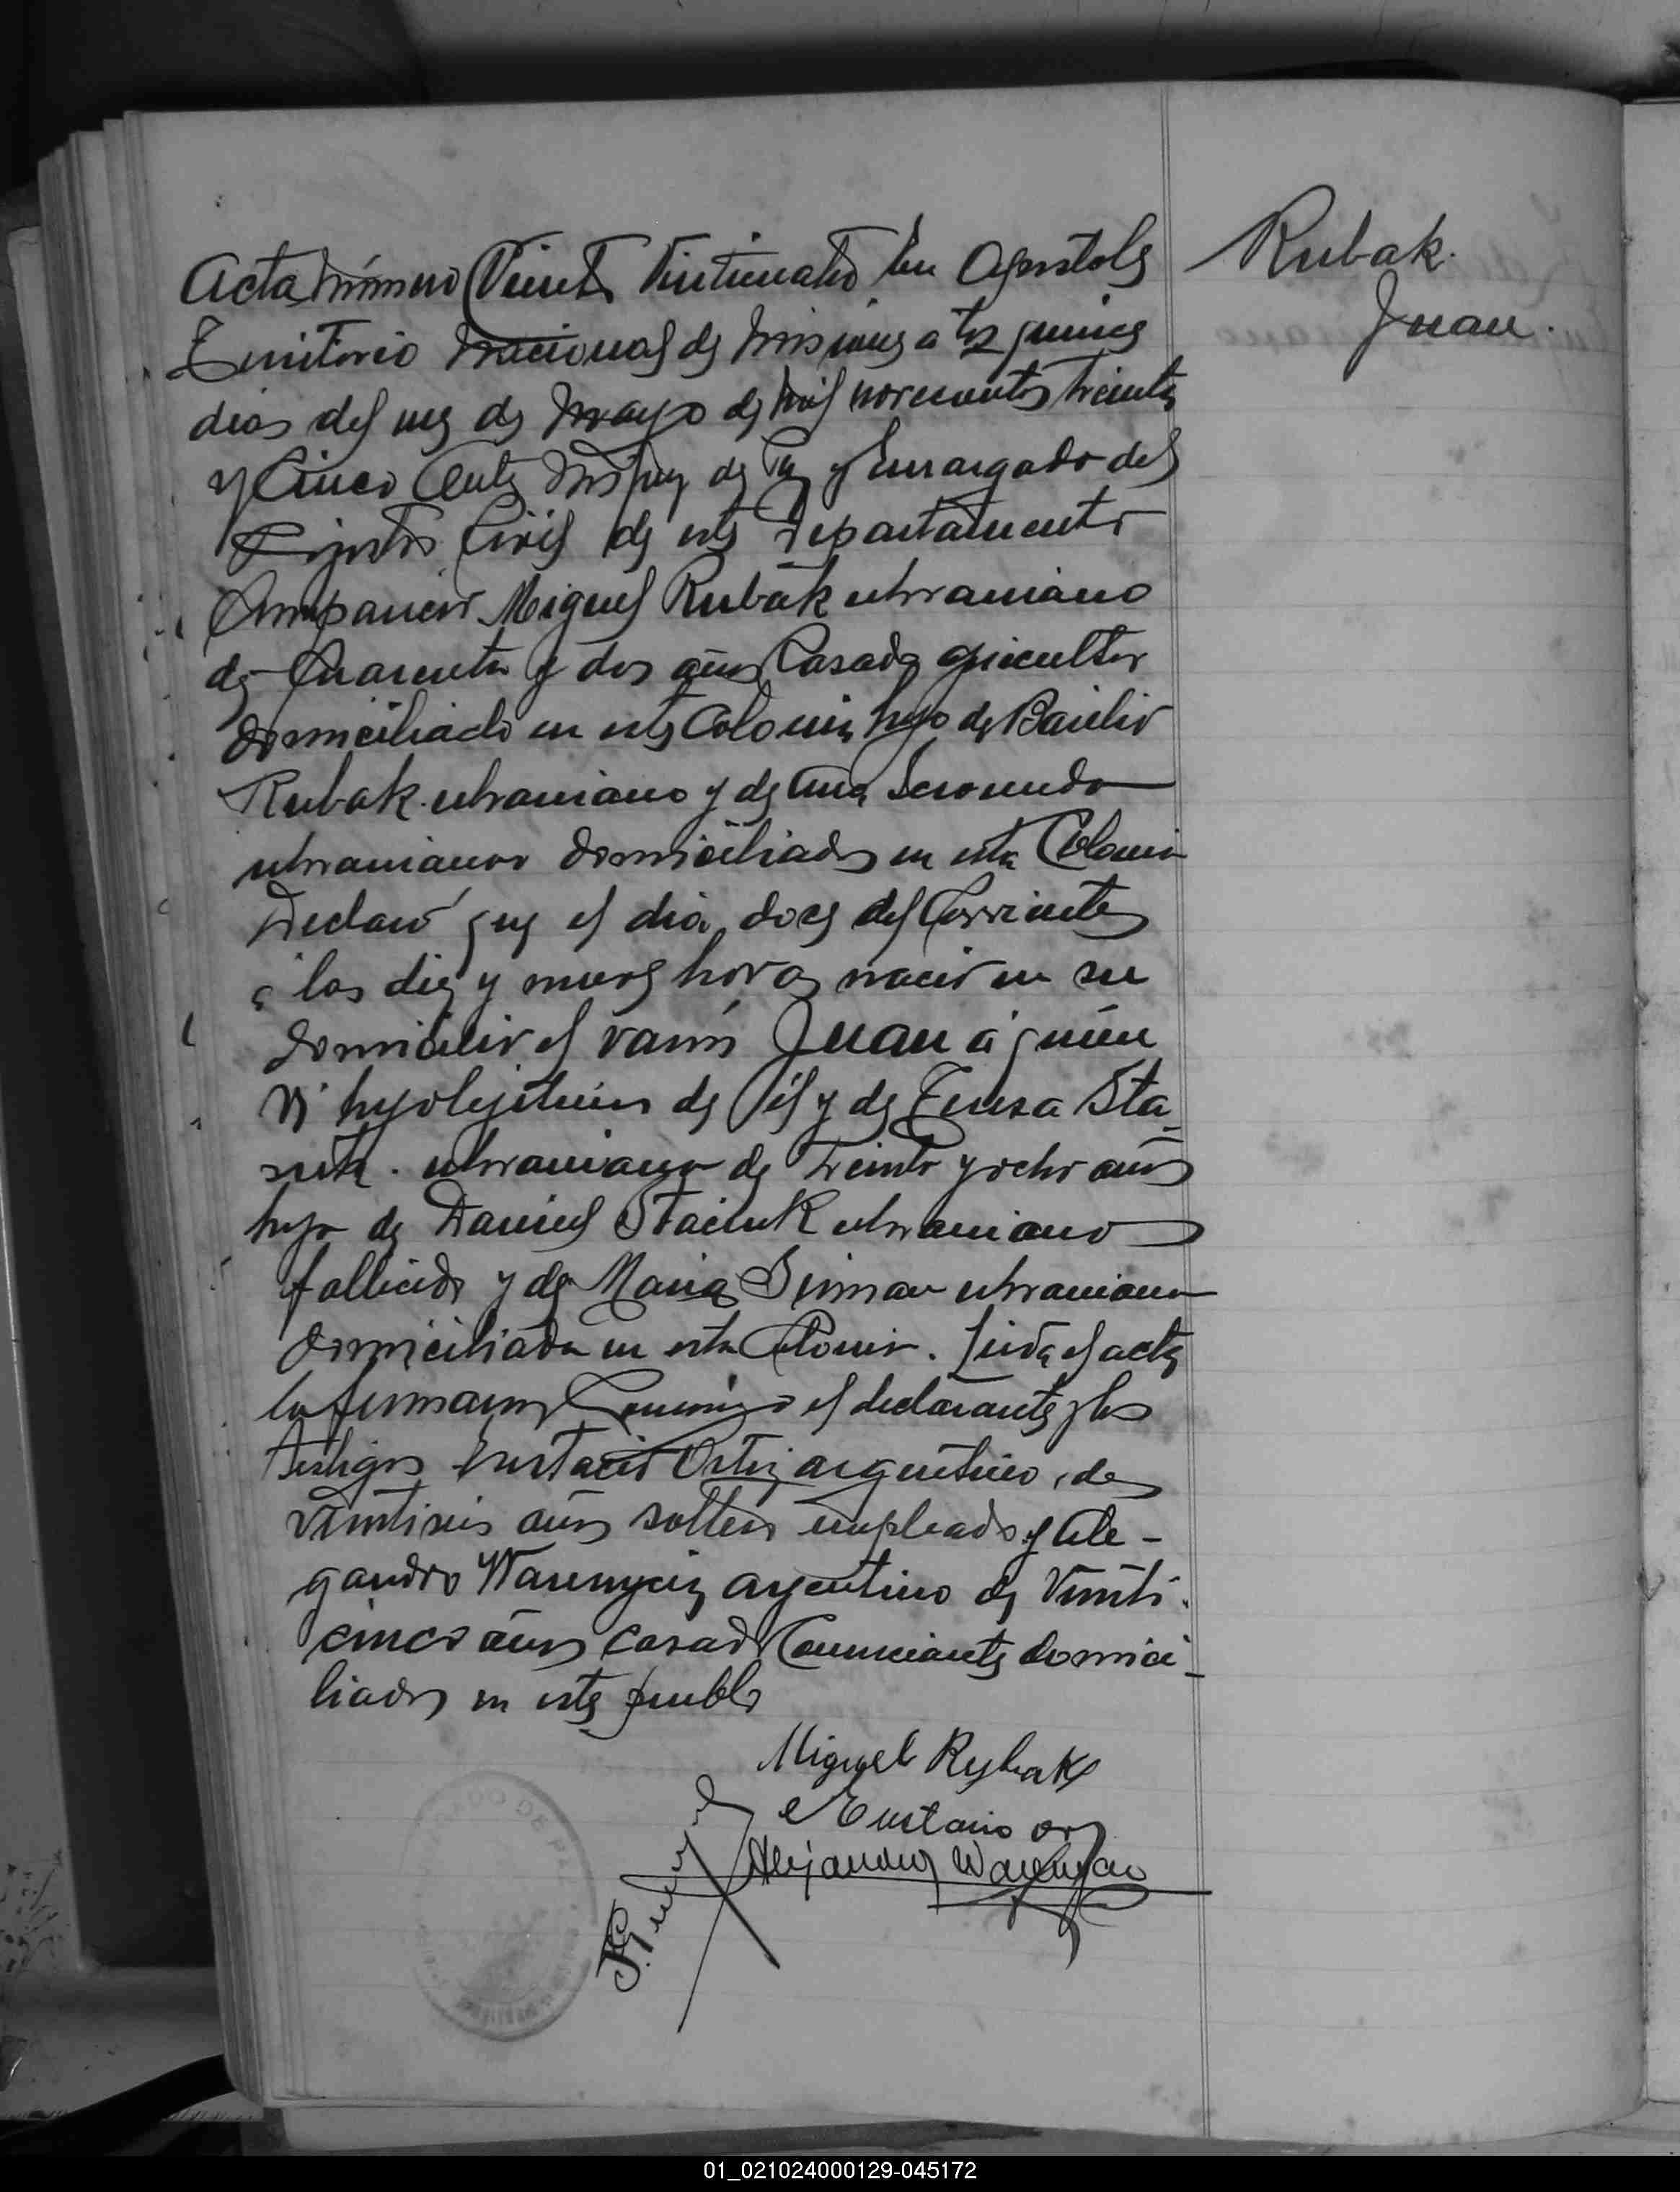 Rubak.
Juan.
Acta Número Ciento Veinticuatro En Apostoles
Territorio Nacional de Misiones a los quince
dias del mes de Mayo de Mil novecientos treinta
y Cinco Ante Mi Juez de Paz y Encargado del
Registro Civil de este Departamento
Compareció Miguel Rubak ukraniano
de Cuarenta y dos años Casado agricultor
domiciliado en esta Colonia hijo de Basilio
Rubak ukraniano y de Ana
ukraniana domiciliados en esta Colonia
Declaró que el dia doce del Corriente
a las diez y nueve horas nació en su
domicilio el varón Juan a quien
vi hijo lejitimo de él y de Teresa Sta-
ukraniana de treinta y ocho años
hija de Daniel Staciuk ukraniano
fallecido y de Maria ukraniana
domiciliada en esta Colonia. Leida el acta
la firmaron Conmigo el declarante y los
testigos Eustacio Ortiz argentino, de
veintiseis años soltero empleado y Ale-
gandro argentino de Veinti-
cinco años casado Comerciante domici-
liados en este pueblo
Miguel Rybak
Eustacio
Alejandro
JUZGADO DE PAZ
01_021024000129-045172